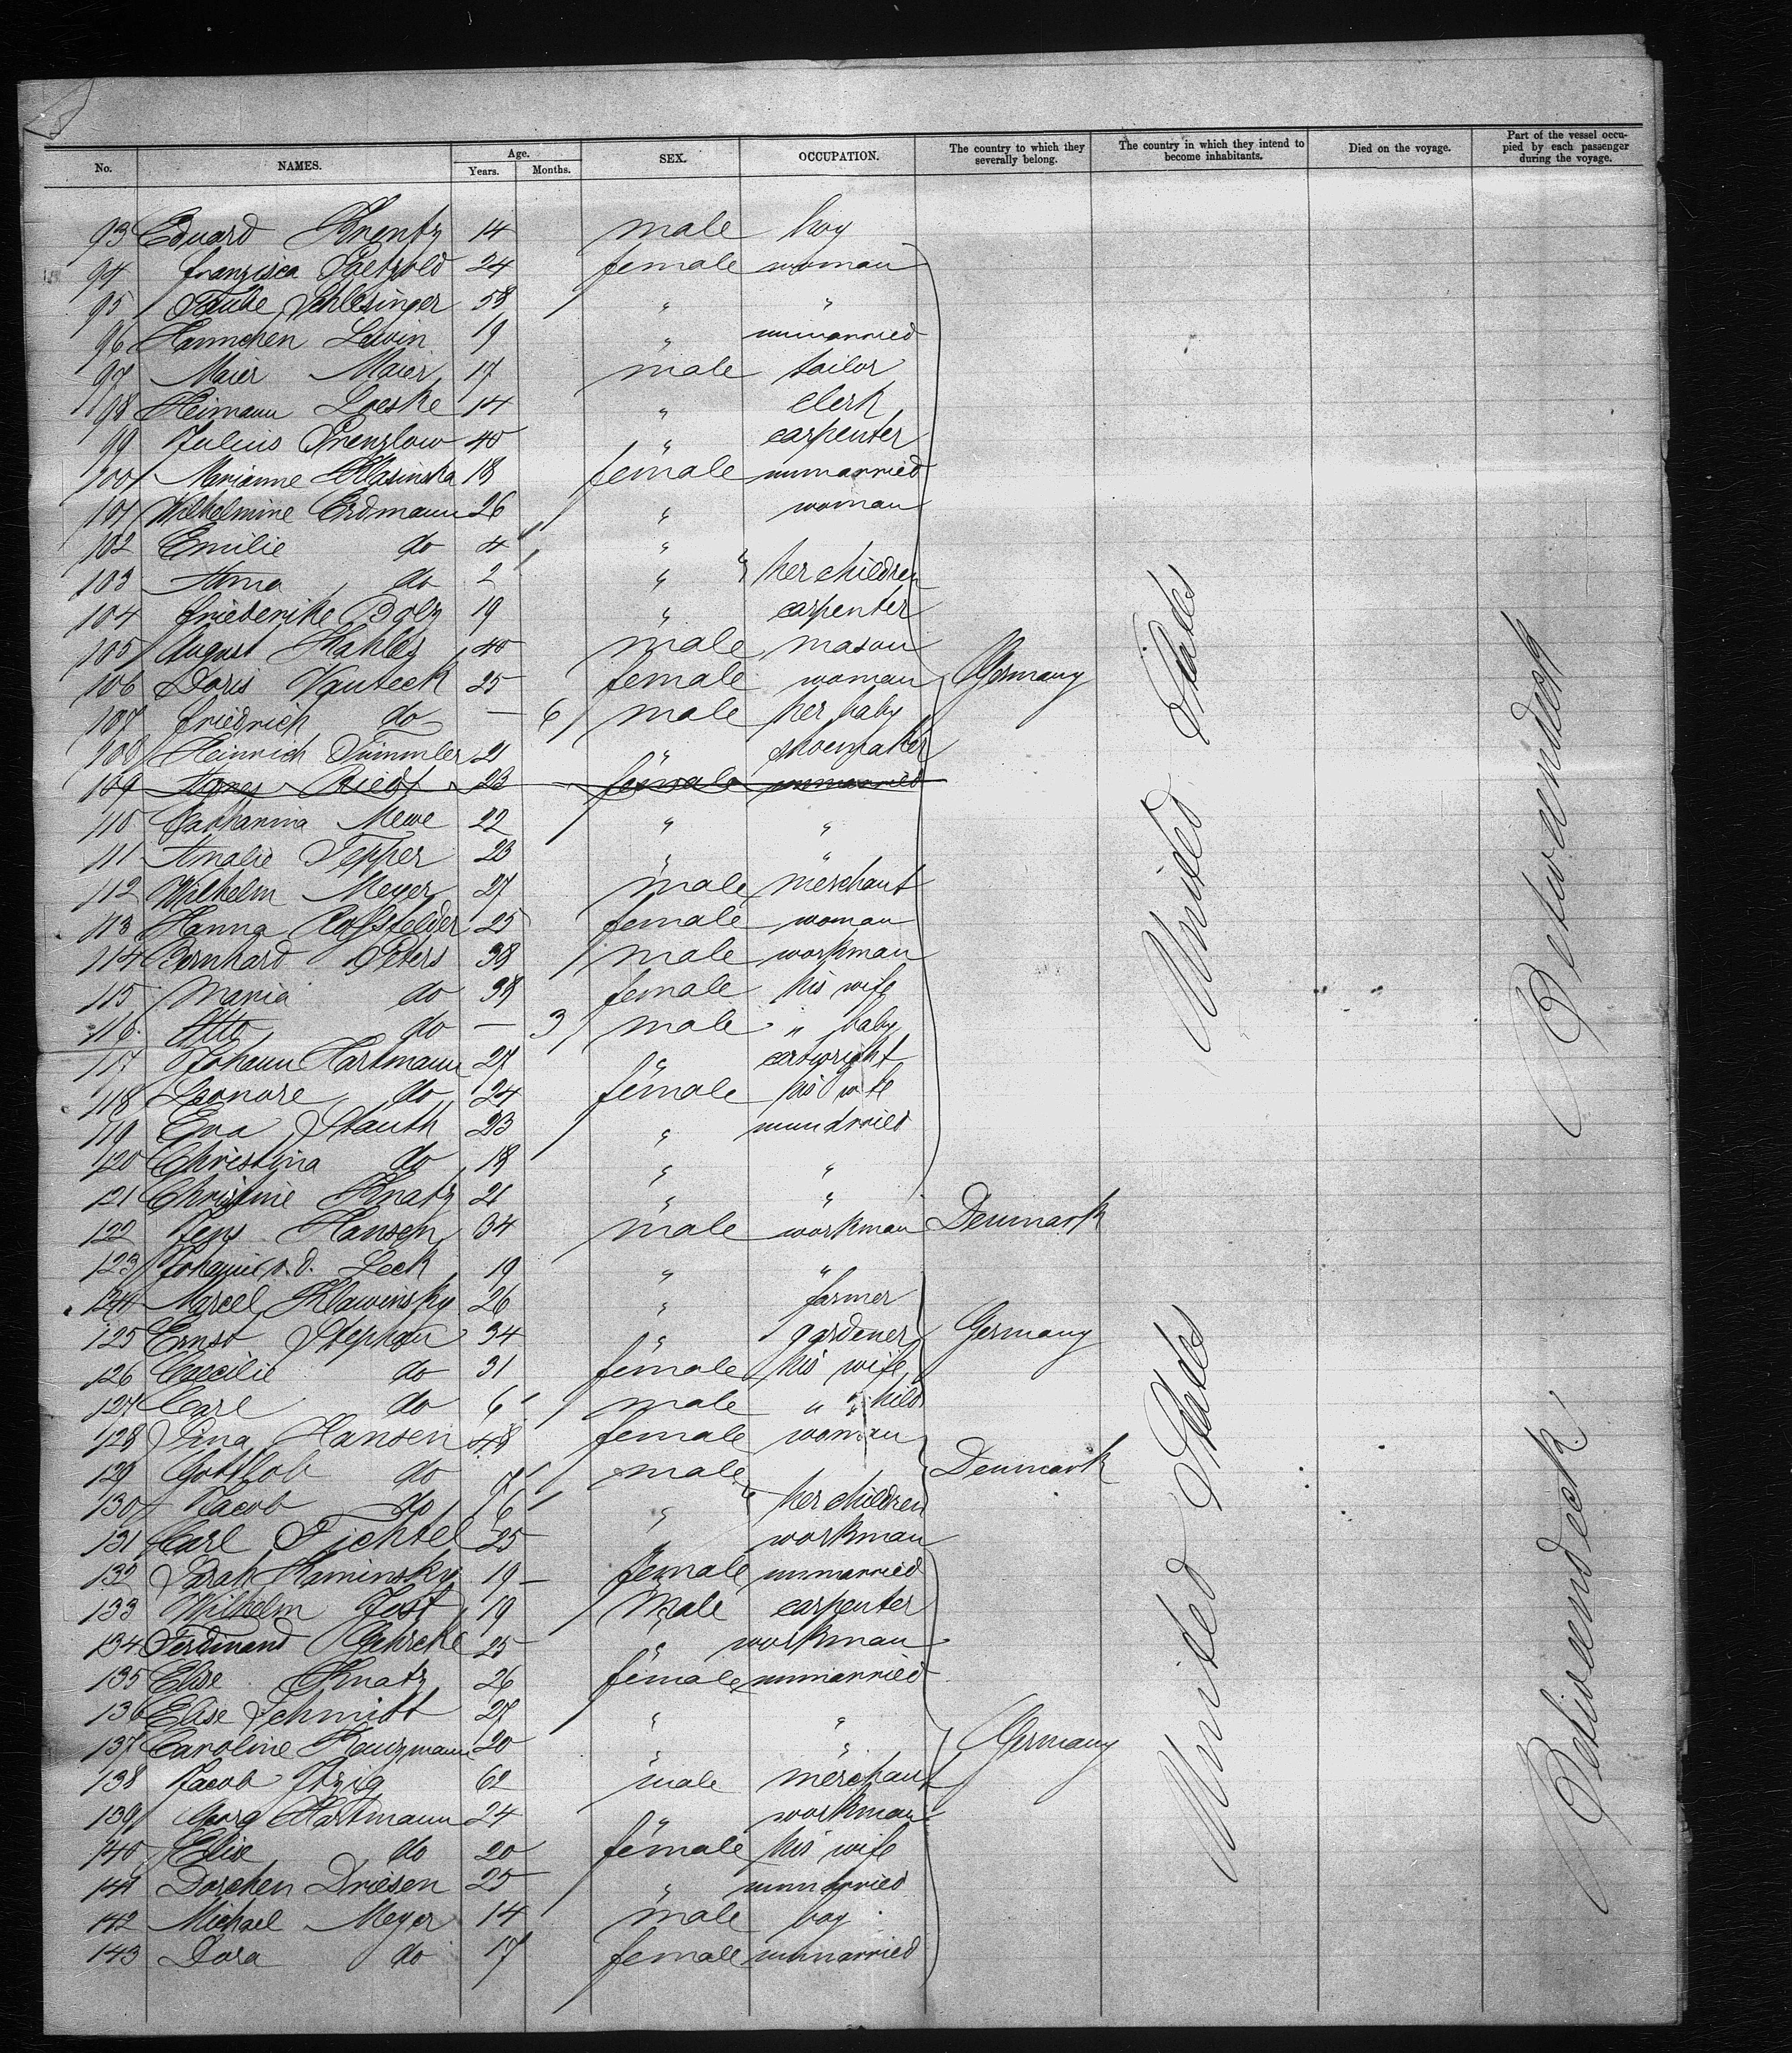 No. NAMES. Age. Years. Months. SEX. OCCUPATION. The country to which they severally belong. The country in which they intend to become inhabitants. Died on the voyage. Part of the vessel occupied by each passenger during the voyage.
93 Eduard 14 male boy
94 Franzisca Paetzold 24 female woman
95 Taube Schlesinger 58 " "
96 Hannchen Lewin 19 " unmarried
97 Maier Maier 17 male tailor
98 Heimann Loeske 14 " clerk
99 Julius Prenzlow 40 " carpenter
100 Marianne Klasinska 18 female unmarried
101 Wilhelmine Erdmann 26 " woman
102 Emilie do 4 "
103 Anna do 2 " her children
104 Friederike Bolz 19 " carpenter
105 August 40 male mason
106 Doris Vauteck 25 female woman Germany
107 Friedrich do — 6 male her baby
108 Heinrich Dümmler 21 " shoemaker
109 Agnes Riedt 23 female unmarried
110 Catharina Mewe 22 " "
111 Amalie Tepper 23 " "
112 Wilhelm Meyer 27 male merchant
113 Hanna 25 female woman
114 Bernhard Peters 38 male workman
115 Maria do 38 female his wife
116 Otto do — 3 male " baby
117 Johann Hartmann 27 " cartwright
118 Leonore do 24 female his wife
119 Eva Stauth 23 " unmarried
120 Christina do 18 " "
121 Christine Knatz 21 " "
122 Jens Hansen 34 male workman Denmark
123 Johann v.d. Leck 19 " "
124 Marcel Klawinsky 26 " farmer
125 Ernst Stephan 34 " gardener Germany
126 Caecilie do 31 female his wife
127 Carl do 6 male " child
128 Lina Hansen 48 female woman
129 Gottlob do 7 male Denmark
130 Jacob do 6 " her children
131 Carl Fichtel 25 workman
132 Sarah Kaminsky 19 female unmarried
133 Wilhelm Jost 19 male carpenter
134 Ferdinand Gehrcke 25 " workman
135 Elise Knatz 26 female unmarried
136 Elise Schmitt 27 " "
137 Caroline 20 " " Germany
138 Jacob Itzig 62 male merchant
139 Georg Hartmann 24 " workman
140 Elise do 20 female his wife
141 Dorchen Driesen 25 " unmarried
142 Michael Meyer 14 male boy
143 Dora do 17 female unmarried
United States
United States
Betweendeck
Betweendeck